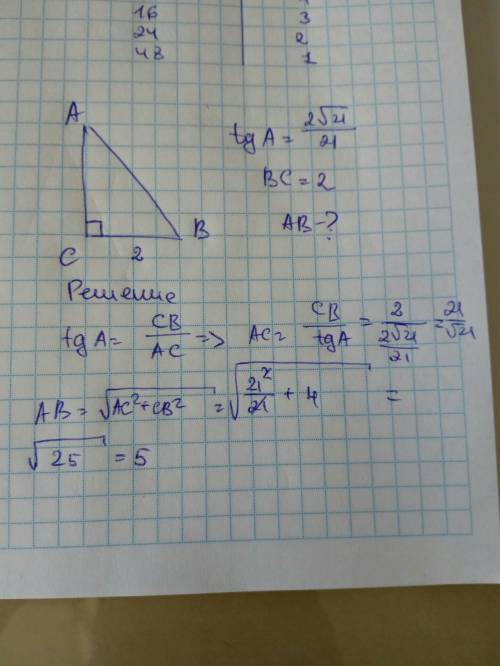 16 3
24 2
48 1
A
tg A = 2√21/21
BC = 2
AB - ?
C 2 B
Решение
tg A = CB/AC => AC = CB/tgA = 2/(2√21/21) = 21/√21
AB = √(AC²+CB²) = √(21²/21 + 4) =
√25 = 5